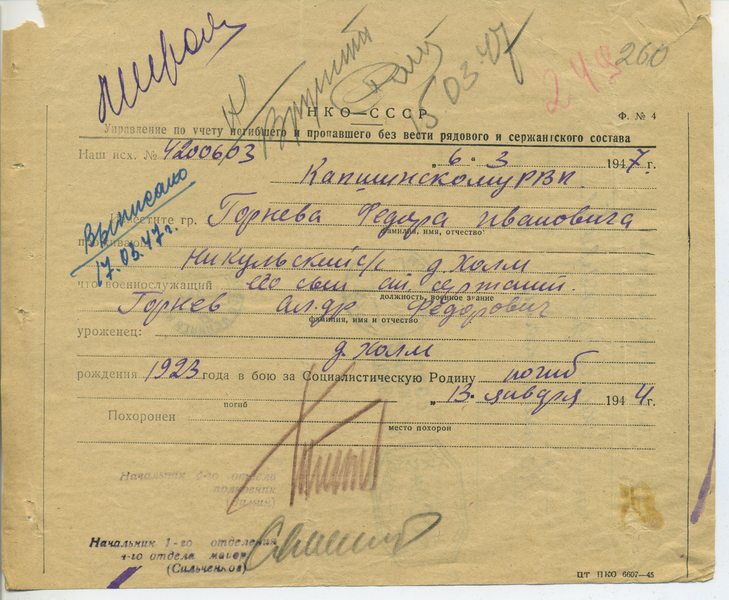 Вручить
15.03.47
249 260
НКО—СССР
Ф. № 4
Управление по учету погибшего и пропавшего без вести рядового и сержантского состава
Наш исх. № 4200603 „6. 3 1947. г.
Капшинскому РВК.
Выписано
17.03.47 г.
Известите гр. Горнева Федора Ивановича
фамилия, имя, отчество
проживающ
Никульский с/с д. Холм
что военнослужащий его сын мл. сержант
должность, военное звание
Горнев Ал-др Фёдорович
фамилия, имя и отчество
уроженец:
д. Холм
рождения 1923 года в бою за Социалистическую Родину погиб
погиб „13. января 1944 г.
Похоронен
место похорон
Начальник 4-го отдела
полковник
Начальник 1-го отделения
4-го отдела майор
(Сильченков)
ЦТ НКО 6607—45